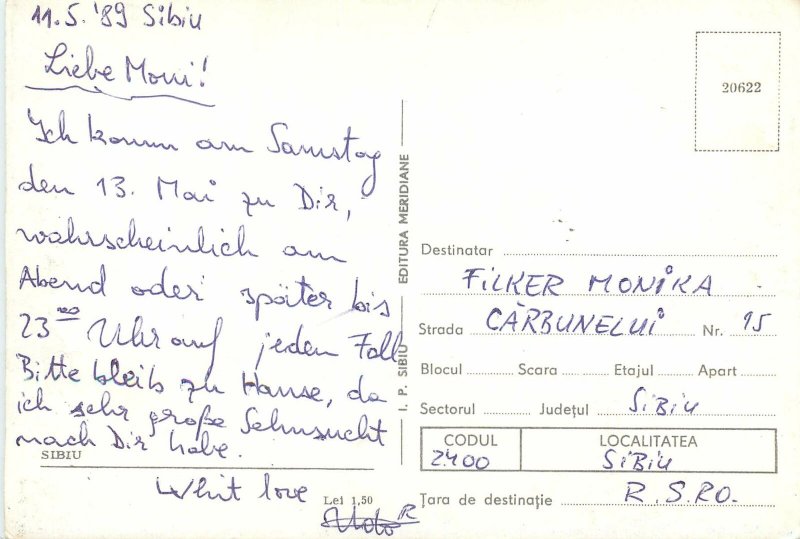 11.5.'89 Sibiu
Liebe Moni!
Ich komm am Samstag
den 13. Mai zu Dir,
wahrscheinlich am
Abend oder später bis
23°° Uhr auf jeden Fall
Bitte bleib zu Hause, da
ich sehr große Sehnsucht
nach Dir habe.
SIBIU
Whit love
Lei 1,50
I. P. SIBIU EDITURA MERIDIANE
20622
Destinatar
FILKER MONIKA
Strada CĂRBUNELUI Nr. 15
Blocul Scara Etajul Apart
Sectorul Județul SIBIU
CODUL LOCALITATEA
2400 SIBIU
Țara de destinație R.S.RO.